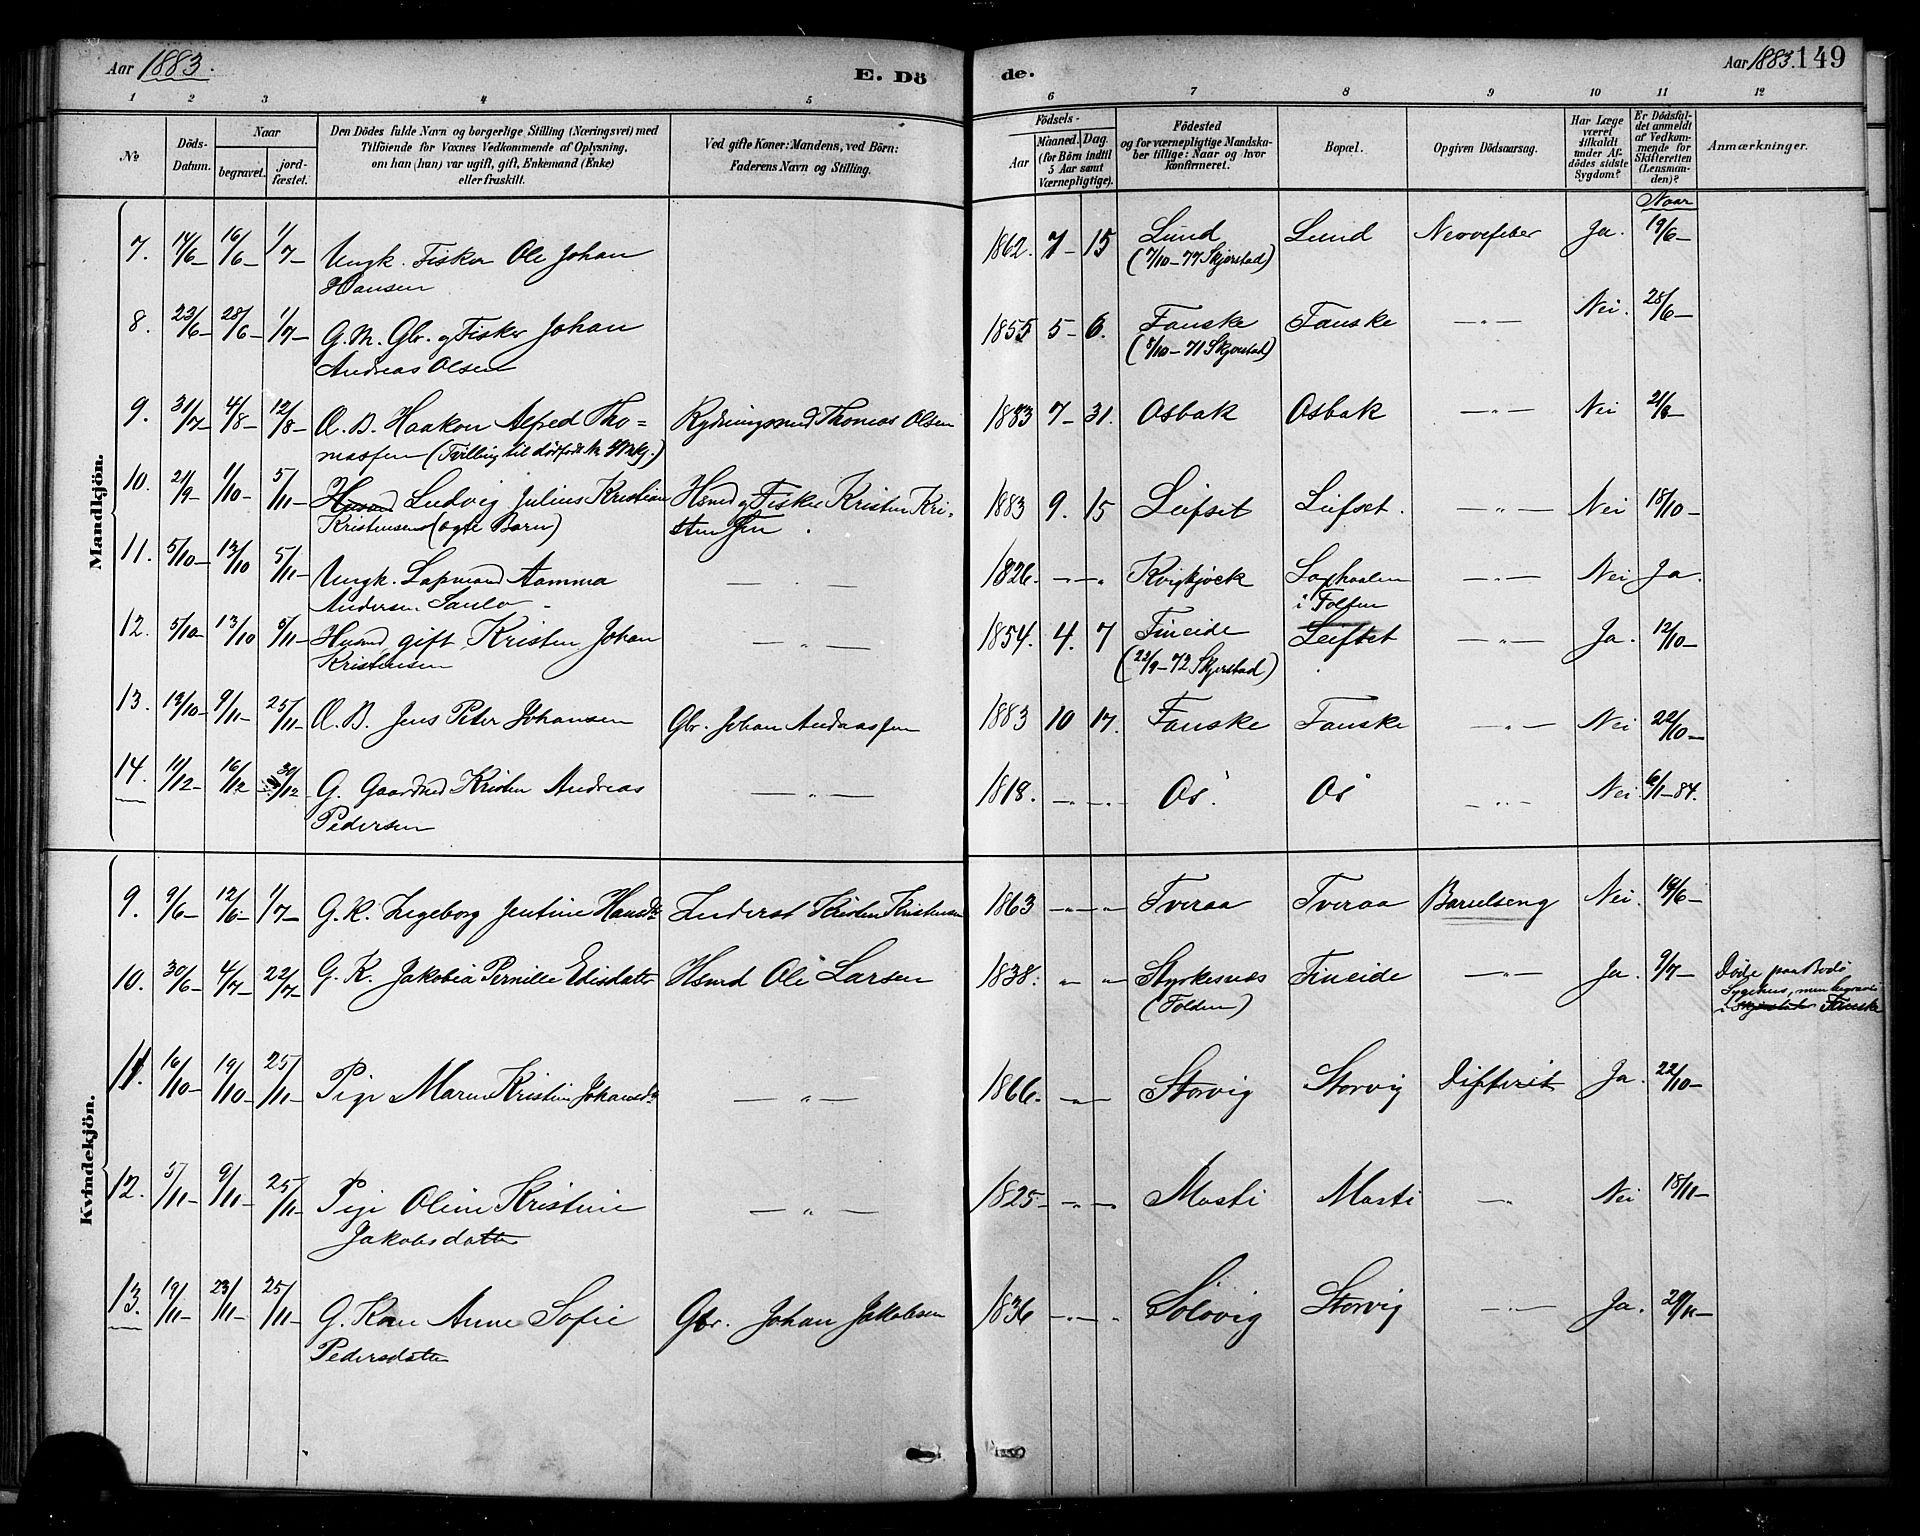 Aar 1883.
E. Dö
de.
Aar 1883. 149
1 2 3 4 5 6 7 8 9 10 11 12
№
Döds-Datum.
Naar
begravet.
jord-fæstet.
Den Dödes fulde Navn og borgerlige Stilling (Næringsvei) med
Tilföiende for Voxnes Vedkommende af Oplysning,
om han (hun) var ugift, gift, Enkemand (Enke)
eller fraskilt.
Ved gifte Koner: Mandens, ved Börn:
Faderens Navn og Stilling.
Födsels-
Aar
Maaned. Dag.
(for Börn indtil
5 Aar samt
Værnepligtige).
Födested
og for værnepligtige Mandska-
ber tillige: Naar og hvor
konfirmeret.
Bopæl.
Opgiven Dödsaarsag.
Har Læge
været
tilkaldt
under Af-
dödes sidste
Sygdom?
Er Dödsfal-
det anmeldt
af Vedkom-
mende for
Skifteretten
(Lensman-
den)?
Anmærkninger.
Naar
Mandkjön.
7. 14/6 16/6 1/7 Ungk. Fisker Ole Johan 1862. 7 15 Lund Lund Nervefeber Ja. 19/6
Hansen (7/10-77 Skjerstad)
8. 23/6 28/6 1/7 G. M. Gbr. og Fisker Johan 1855 5 6. Fauske Fauske —"— Nei. 28/6
Andreas Olsen (8/10-71 Skjerstad)
9. 31/7 4/8 12/8 Æ. B. Haakon Alfred Tho= Rydningsmd Thomas Olsen 1883 7 31. Osbak Osbak —"— Nei 21/8
massen (Tvilling til dødfødt
10. 21/9 1/10 5/11 Husmd Ludvig Julius Kristian Hsmd og Fisker Kristen Kri- 1883 9. 15 Leifset Leifset. —"— Nei 18/10
Kristensen (ægte Barn) stensen
11. 5/10 13/10 5/11 Ungk. Lapmand Aamma —"— 1826. —"— Kvikkjock Laxhaalen Nei Ja.
Andersen Saulo i Folden
12. 5/10 13/10 5/11 Husmd gift Kristen Johan —"— 1854. 4. 7 Fineide Leifset —"— Ja. 12/10
Kristensen (22/9-72 Skjerstad)
13. 19/10 9/11 25/11 Æ. B. Jens Peter Johansen Gbr. Johan Andreassen 1883 10 17. Fauske Fauske —"— Nei 22/10
14. 11/12 16/12 30/12 G. Gaardmd Kristen Andreas —"— 1818. —"— Os. Os —"— Nei. 6/1-84.
Pedersen
Kvindekjön.
9. 9/6 12/6 1/7 G. K. Ingeborg Jentine Hansdt. Inderst Kristen Kristensen 1863 —"— Tveraa Tveraa Barselseng Nei. 19/6
10. 30/6 4/7 22/7 G. K. Jakobia Pernille Edisdatter Hsmd Ole Larsen 1838. " " Styrkesnes Fineide —"— Ja. 9/7 Døde paa Bodø
(Folden) Sygehus, men begravet
i Skjerstad Fauske
11. 16/10 19/10 25/11 Pige Maren Kristine Johansdt. —"— 1866. —"— Storvig Storvig Difterit Ja. 22/10
12. 5/11 9/11 25/11 Pige Oline Kristine —"— 1825 —"— Mosti Mosti —"— Nei 18/11
Jakobsdatter
13. 19/11 23/11 25/11 G. Kone Anne Sofie Gbr. Johan Jakobsen 1836 —"— Solvig Storvig —"— Ja. 29/11
Pedersdatter